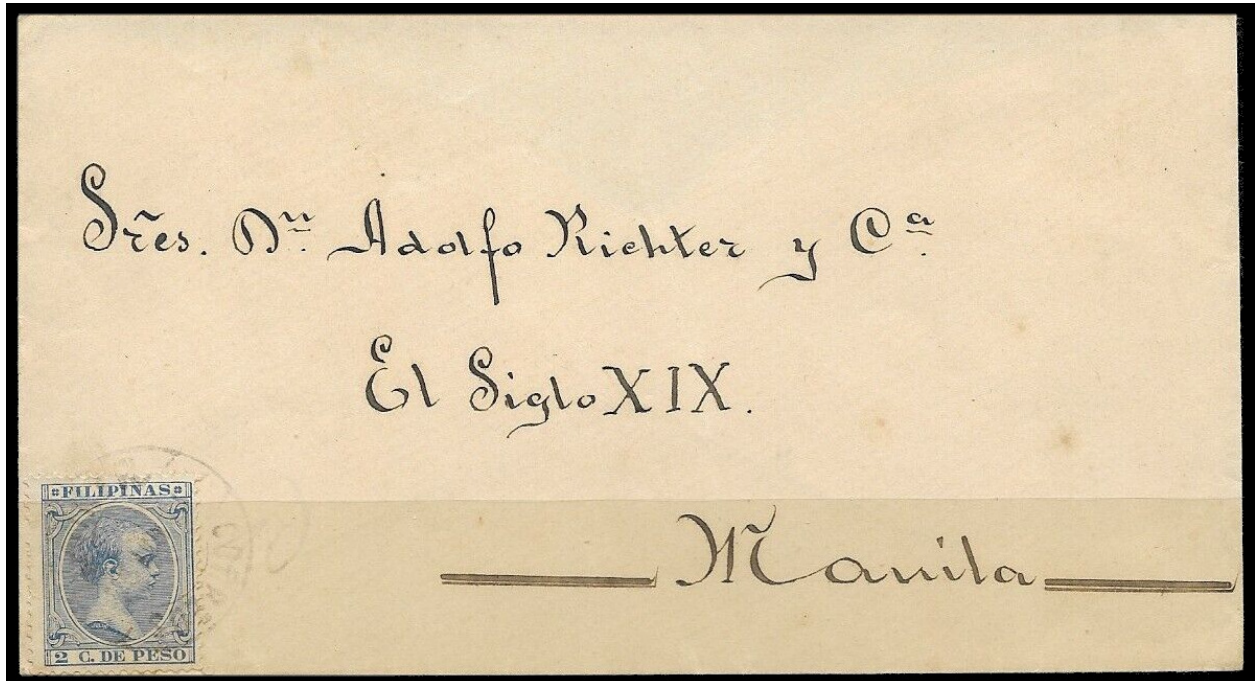 Sr̃es. Dⁿ. Adolfo Richter y Cª.
El Siglo XIX.
Manila
FILIPINAS
2 C. DE PESO